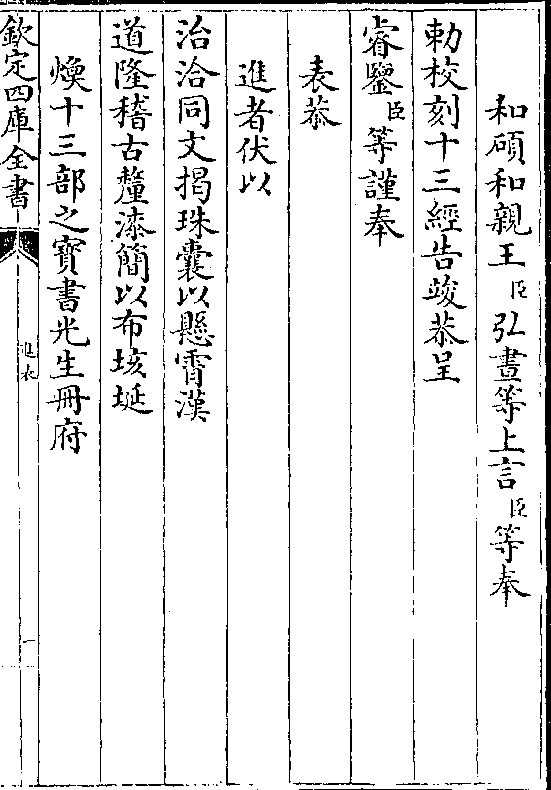 和碩和親王臣弘晝等上言臣等奉
勅校刻十三經告竣恭呈
睿鑒臣等謹奉
表恭
進者伏以
治洽同文揭珠囊以懸霄漢
道隆稽古釐漆簡以布垓埏
煥十三部之寳書光生冊府
欽定四庫全書
進表
一